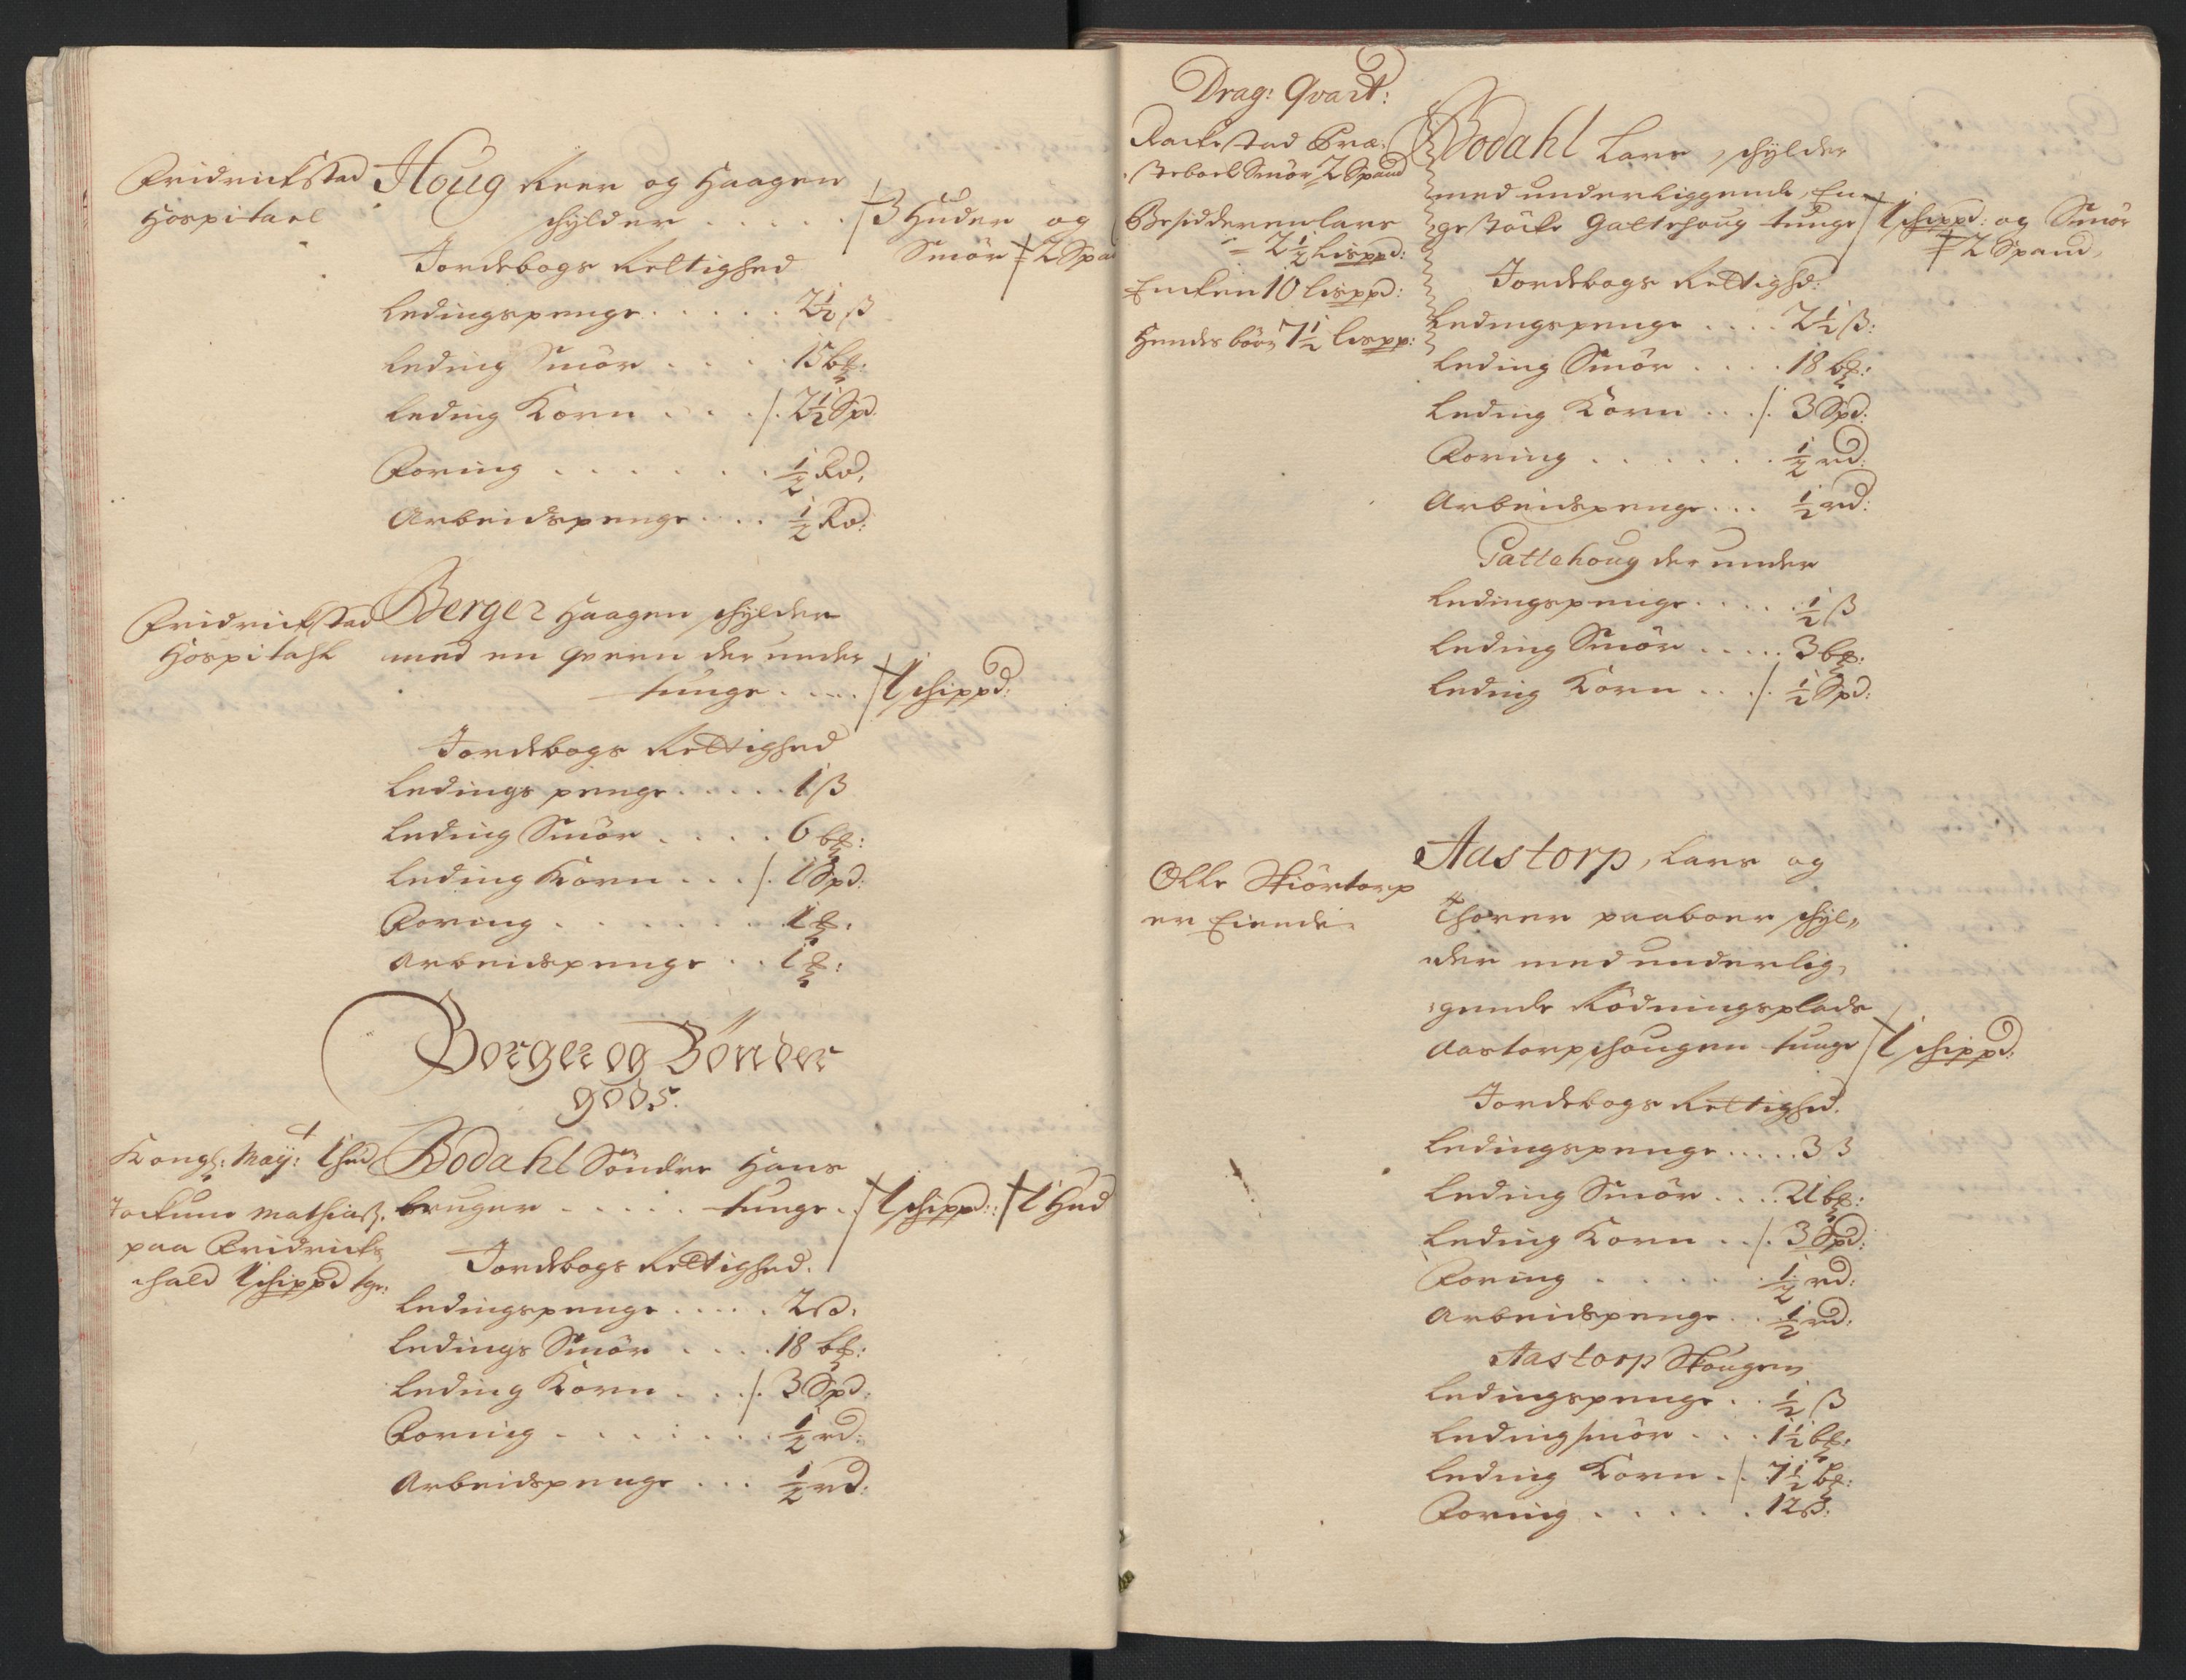 Fridrickstad
Hospitael
Houg Peer og Haagen
schylder . . . . . 3 Huder og
Smör 2 Spa
Jordebogs Rettighed
Ledingspenge . . . . . 2½ ß
Leding Smör . . . . 15 b℔:
Leding Korn . . . /. 2½ Spd.
Foring . . . . . . . ½ Rd.
Arbeidspenge . . . . ½ Rd:
Fridrickstad
Hospitahl
Berger Haagen schylder
med en qvern der under
tunge . . . . 1 schippd:
Jordebogs Rettighed
Ledings penge . . . . . 1 ß
Leding Smör . . . . 6 b℔:
Leding Korn . . . /. 1 Spd:
Foring . . . . . . . 1 ℔:
Arbeidspenge . . 1 ℔:
Borger og Bönder
gods.
Kongl: Maÿ: 1 hud
Jockum Mathiaß.
paa Fridricks
hald 1 schippd tge:
Bodahl Söndre Hans
bruger . . . . . tunge . 1 schippd: 1 Hud
Jordebogs Rettighed.
Ledingspenge . . . . . 2 ß.
Ledings Smör . . . . 18 b℔:
Leding Korn . . . /. 3 Spd:
Foring . . . . . . . ½ rd:
Arbeidspenge . . . ½ rd:
Drag: Qvart:
Rackestad Præ:
steboel Smör 2 Spand
Besidderen Lars
2½ Lispd:
Encken 10 Lispd:
Hendes börn 7½ Lispp:
Bodahl Lars schylder
med underliggende En-
gestöcke Gattehoug tunge 1 schippd: og Smör
2 Spand.
Jordebogs Rettighd:
Ledingspenge . . . . 2½ ß:
Leding Smör . . . . 18 b℔:
Leding Korn . . . /. 3 Spd:
Foring . . . . . . . ½ rd:
Arbeidspenge . . . ½ rd:
Gattehoug der under
Ledingspenge . . . . . ½ ß
Leding Smör . . . . . 3 b℔:
Leding Korn . . . /. ½ Spd:
Olle Skiörtorp
er Eiende.
Aastorp, Lars og
Thorer paaboer schyl„
der med underlig,
gende Rödningsplads
Aastorpshougen tunge 1 schippd:
Jordebogs Rettighed.
Ledingspenge . . . . . 3 ß
Leding Smör . . . . 21 b℔:
Leding Korn . . /. 3 Spd:
Foring . . . . . . . ½ rd:
Arbeidspenge . . ½ rd:
Aastorp Skougen
Ledingspenge . . ½ ß
Leding smör . . . 1½ b℔:
Leding Korn . . /. 7½ b℔:
Foring . . . . . . 12 ß: